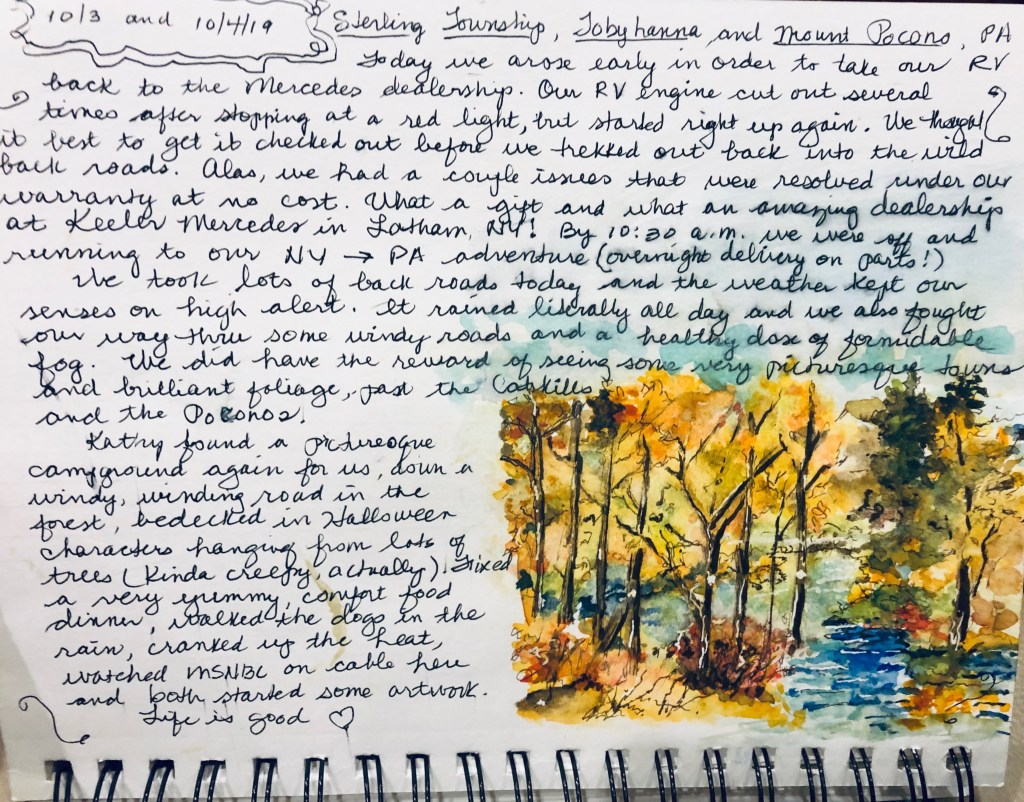 10/3 and 10/4/19
Sterling Township, Tobyhanna and Mount Pocono, PA
Today we arose early in order to take our RV
back to the Mercedes dealership. Our RV engine cut out several
times after stopping at a red light, but started right up again. We thought
it best to get it checked out before we trekked out back into the wild
back roads. Alas, we had a couple issues that were resolved under our
warranty at no cost. What a gift and what an amazing dealership
at Keeler Mercedes in Latham, NY! By 10:30 a.m. we were off and
running to our NY → PA adventure (overnight delivery on parts!)
We took lots of back roads today and the weather kept our
senses on high alert. It rained literally all day and we also fought
our way thru some windy roads and a healthy dose of formidable
fog. We did have the reward of seeing some very picturesque towns
and brilliant foliage, past the Catskills
and the Poconos.
Kathy found a picturesque
campground again for us, down a
windy, winding road in the
forest, bedecked in Halloween
characters hanging from lots of
trees (kinda creepy, actually). Fixed
a very yummy, comfort food
dinner, walked the dogs in the
rain, cranked up the heat,
watched MSNBC on cable here
and both started some artwork.
Life is good ♡